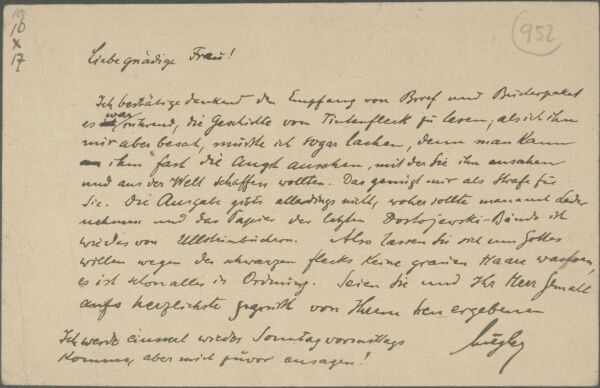 19
10
X
17
952
Liebe gnädige Frau!
Ich bestätige dankend den Empfang von Brief und Bücherpaket
es war rührend, die Geschichte vom Tintenfleck zu lesen; als ich ihn
mir aber besah, mußte ich sogar lachen, denn man kann
ihm fast die Angst ansehen, mit der Sie ihn ansahen
und aus der Welt schaffen wollten. Das genügt mir als Strafe für
Sie. Die Ausgabe gibts allerdings nicht, woher sollte man auch Leder
nehmen und das Papier des letzten Dostojewski-Bands ist
wie das von Ullsteinbüchern. Also lassen Sie sich um Gottes
willen wegen des schwarzen flecks keine grauen Haare wachsen,
es ist schon alles in Ordnung. Seien Sie und Ihr Herr Gemahl
aufs herzlichste gegrüßt von Ihrem treu ergebenen
Ich werde einmal wieder Sonntag vormittags
komme, aber mich zuvor ansagen!